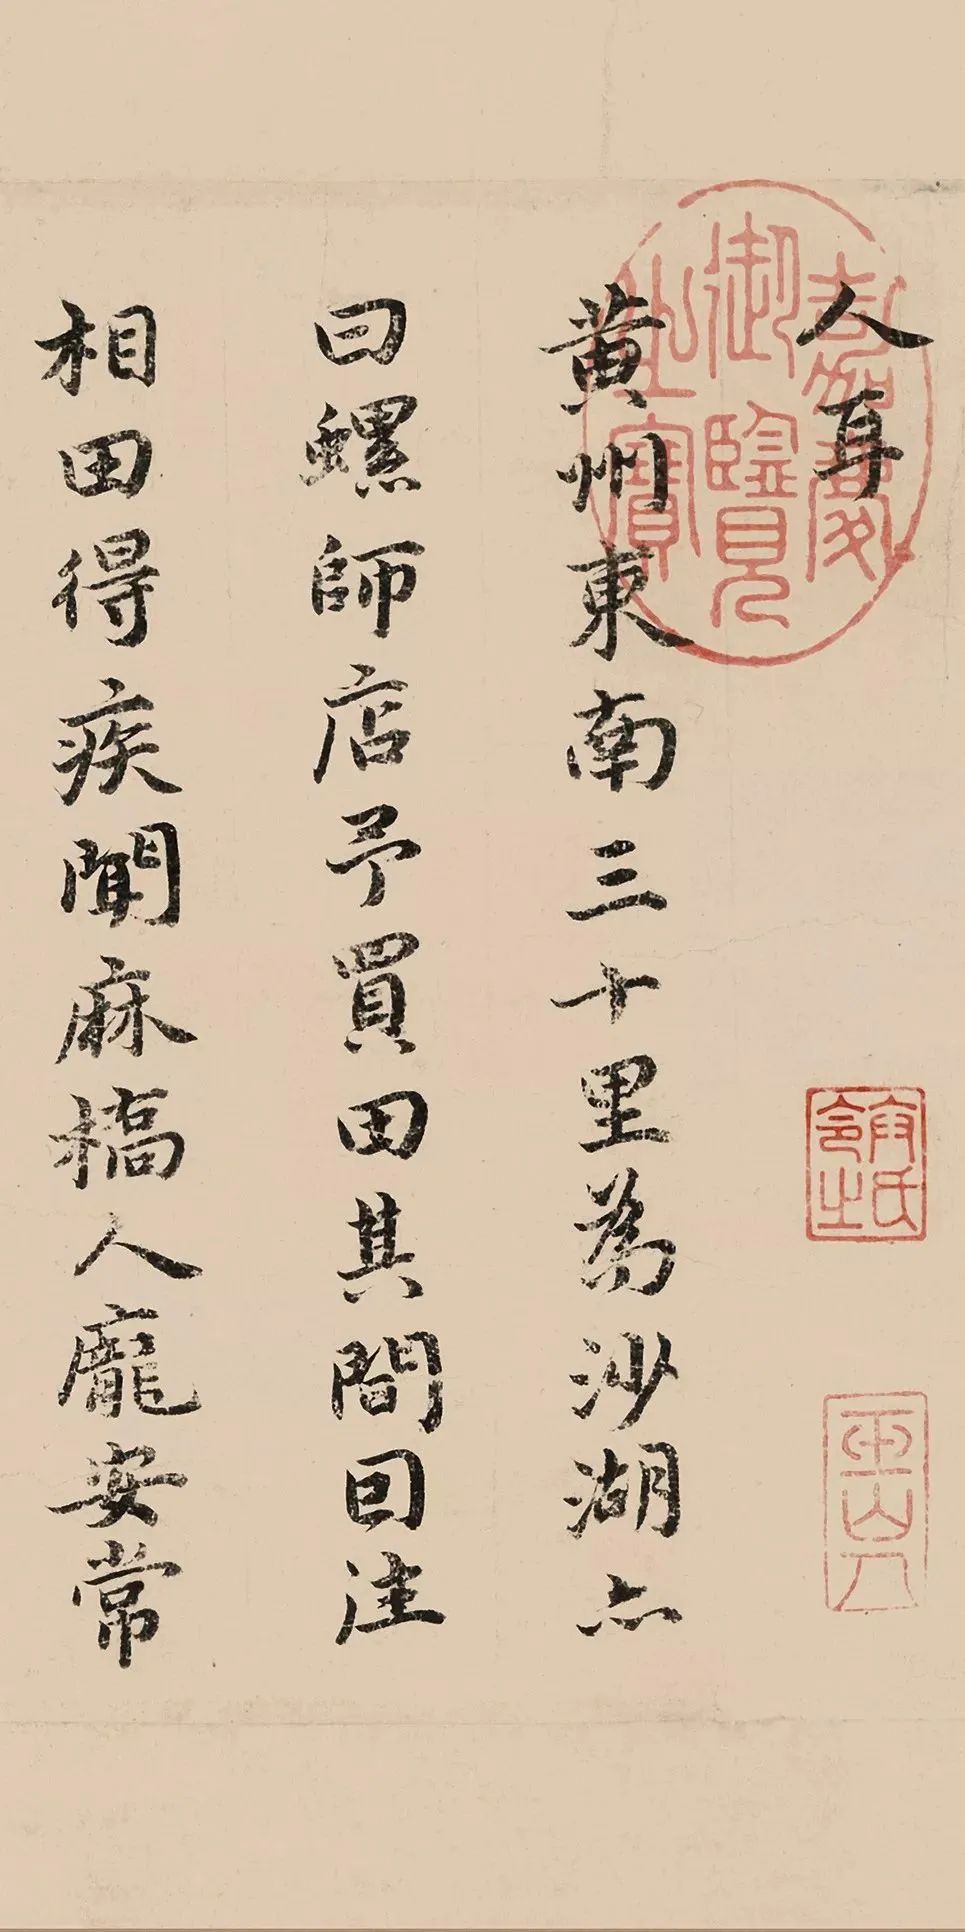 人耳
黄州東南三十里為沙湖亦
曰螺師店予買田其間因往
相田得疾聞麻橋人龐安常
嘉慶御覽之寶